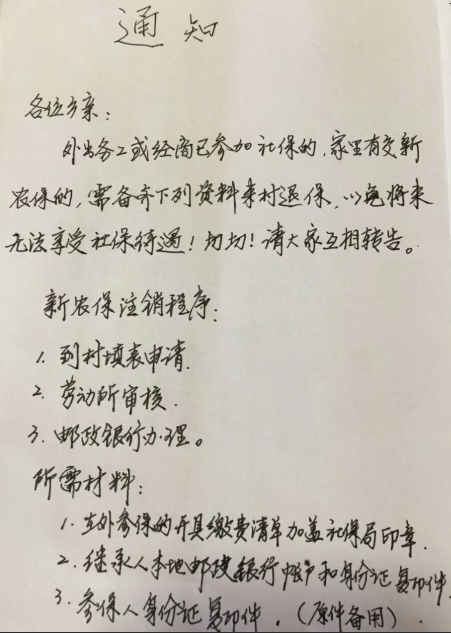 通知
各位乡亲：
外出务工或经商已参加社保的，家里有交新
农保的，需备齐下列资料来村退保，以免将来
无法享受社保待遇！切切！请大家互相转告。
新农保注销程序：
1. 到村填表申请.
2. 劳动所审核.
3. 邮政银行办理。
所需材料：
1. 在外参保的开具缴费清单加盖社保局印章.
2. 继承人本地邮政银行帐户和身份证复印件.
3. 参保人身份证复印件.（原件备用）